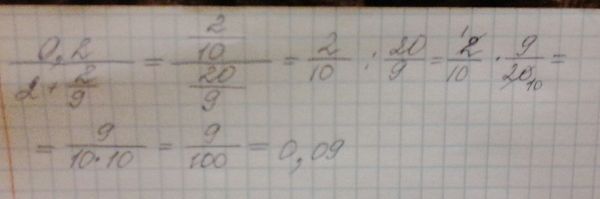 0,2 / (2 + 2/9) = (2/10) / (20/9) = 2/10 : 20/9 = 2 1/10 · 9/20 10 =
= 9/(10·10) = 9/100 = 0,09